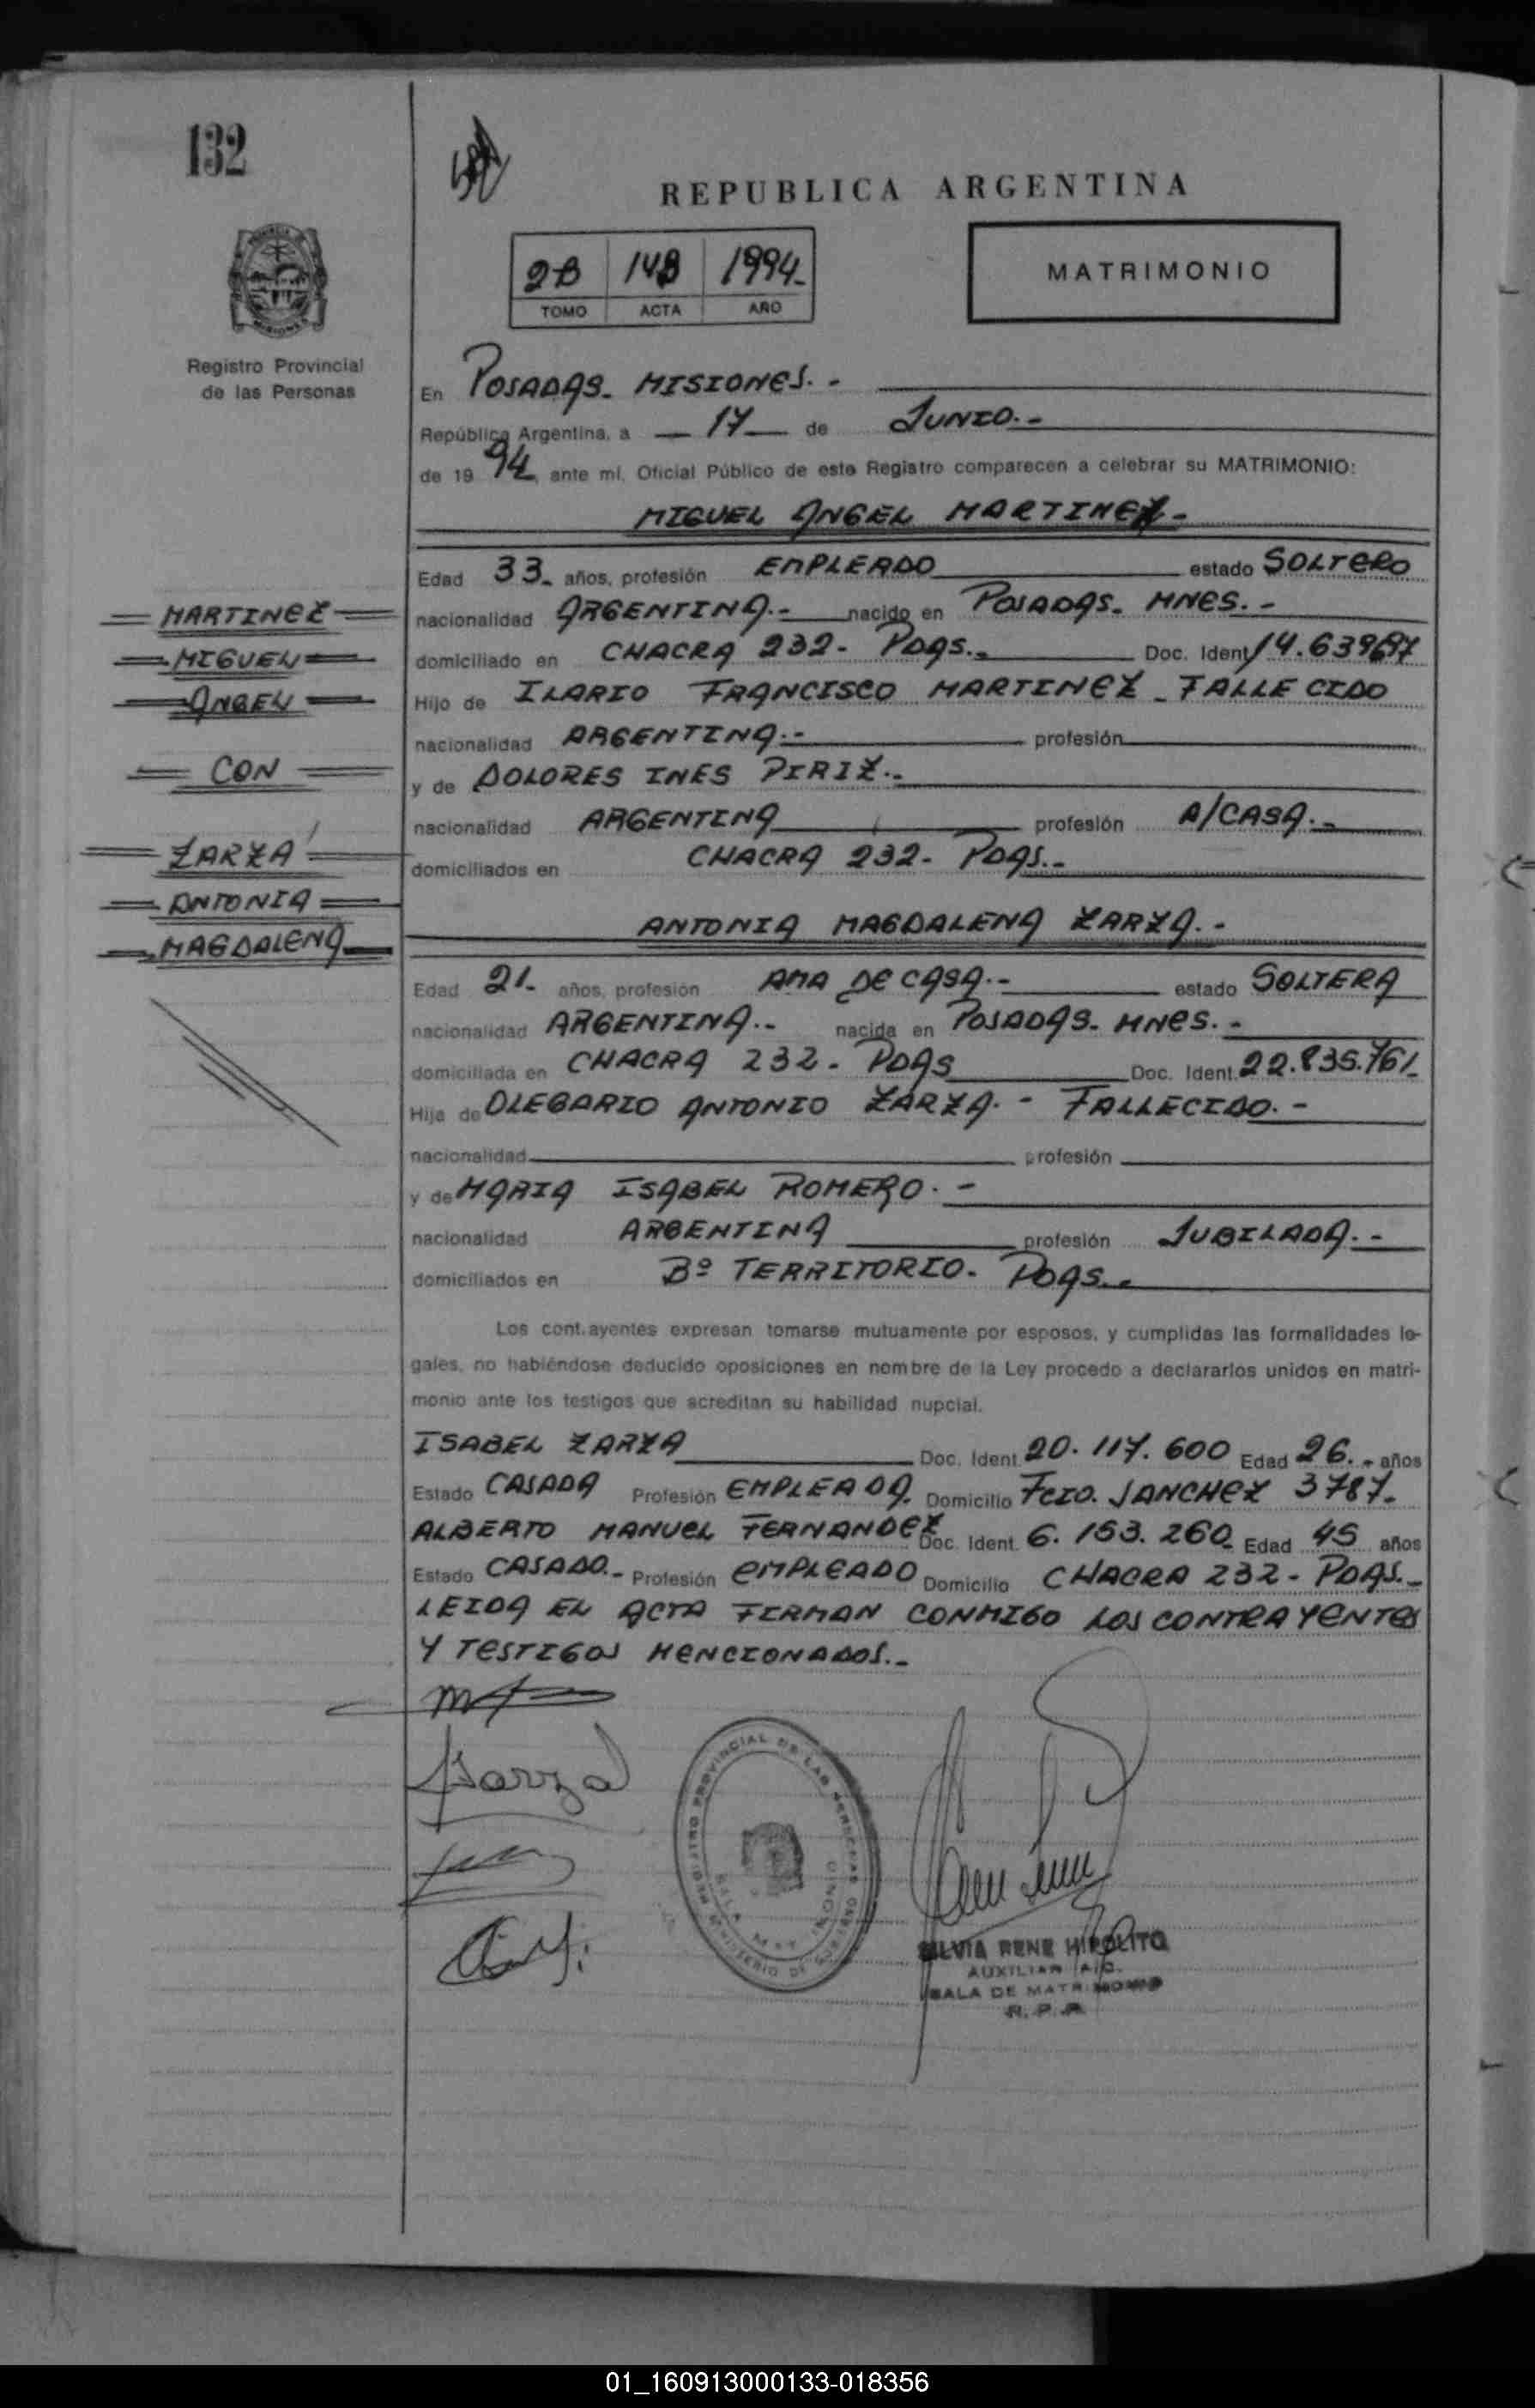 132
REPUBLICA ARGENTINA
2B 148 1994.-
TOMO ACTA AÑO
MATRIMONIO
Registro Provincial
de las Personas
En POSADAS. MISIONES. -
República Argentina, a — 17 — de JUNIO. -
de 19 94, ante mí, Oficial Público de este Registro comparecen a celebrar su MATRIMONIO:
MIGUEL ANGEL MARTINEZ -
Edad 33. años, profesión EMPLEADO estado SOLTERO
nacionalidad ARGENTINA. - nacido en POSADAS. MNES. -
domiciliado en CHACRA 232 - PDAS. - Doc. Ident 14.639697
Hijo de ILARIO FRANCISCO MARTINEZ - FALLECIDO
nacionalidad ARGENTINA. - profesión
y de DOLORES INES PIRIZ. -
nacionalidad ARGENTINA profesión A/CASA. -
domiciliados en CHACRA 232 - PDAS. -
MARTINEZ
MIGUEL
ANGEL
CON
ZARZA
ANTONIA
MAGDALENA
ANTONIA MAGDALENA ZARZA. -
Edad 21. años, profesión AMA DE CASA. - estado SOLTERA
nacionalidad ARGENTINA. - nacida en POSADAS. MNES. -
domiciliada en CHACRA 232 - PDAS Doc. Ident. 22.835.761
Hija de OLEGARIO ANTONIO ZARZA. - FALLECIDO. -
nacionalidad profesión
y de MARIA ISABEL ROMERO. -
nacionalidad ARGENTINA profesión JUBILADA. -
domiciliados en Bº TERRITORIO. PDAS. -
Los cont.ayentes expresan tomarse mutuamente por esposos, y cumplidas las formalidades le-
gales, no habiéndose deducido oposiciones en nombre de la Ley procedo a declararlos unidos en matri-
monio ante los testigos que acreditan su habilidad nupcial.
ISABEL ZARZA Doc. Ident. 20.117.600 Edad 26. - años
Estado CASADA Profesión EMPLEADA. Domicilio FCIO. SANCHEZ 3787.
ALBERTO MANUEL FERNANDEZ Doc. Ident. 6.153.260 Edad 45 años
Estado CASADO. - Profesión EMPLEADO Domicilio CHACRA 232 - PDAS. -
LEIDA EL ACTA FIRMAN CONMIGO LOS CONTRAYENTES
Y TESTIGOS MENCIONADOS. -
Zarza
REGISTRO PROVINCIAL DE LAS PERSONAS
MINISTERIO DE GOBIERNO
SILVIA RENE HIPOLITO
AUXILIAR
SALA DE MATRIMONIO
R. P. P.
01_160913000133-018356